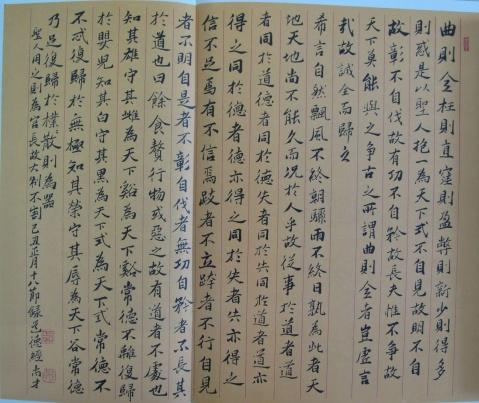 曲則全枉則直窪則盈弊則新少則得多
則惑是以聖人抱一為天下式不自見故明不自
故彰不自伐故有功不自矜故長夫惟不爭故
天下莫能與之爭古之所謂曲則全者豈虛言
哉故誠全而歸之
希言自然飄風不終朝驟雨不終日孰為此者天
地天地尚不能久而況於人乎故從事於道者道
者同於道德者同於德失者同於失同於道者道亦
得之同於德者德亦得之同於失者失亦得之
信不足焉有不信焉跂者不立跨者不行自見
者不明自是者不彰自伐者無功自矜者不長其
於道也曰餘食贅行物或惡之故有道者不處也
知其雄守其雌為天下谿為天下谿常德不離復歸
於嬰兒知其白守其黑為天下式為天下式常德不
忒復歸於無極知其榮守其辱為天下谷常德
乃足復歸於樸樸散則為器
聖人用之則為官長故大制不割己丑正月十八節錄道德經尚才